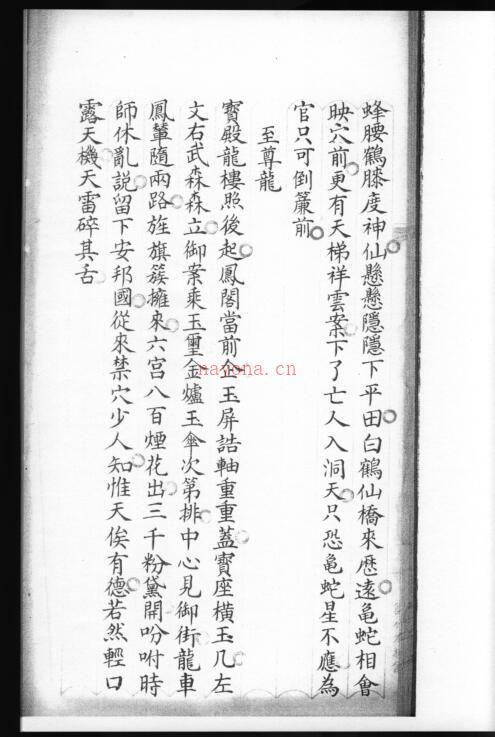 蜂腰鶴膝度神仙懸懸隱隱下平田白鶴仙橋來歷遠龜蛇相會
映穴前更有天梯祥雲案下了亡人入洞天只恐龜蛇星不應為
官只可倒簾前
至尊龍
寶殿龍樓照後起鳳閣當前企玉屏誥軸重重蓋寶座橫玉几左
文右武森森立御案乘玉璽金爐玉傘次第排中心見御街龍車
鳳輦隨兩路旌旗簇擁來六宮八百煙花出三千粉黛開吩咐時
師休亂説留下安邦國從來禁穴少人知惟天俟有德若然輕口
露天機天雷碎其舌
nayona.cn